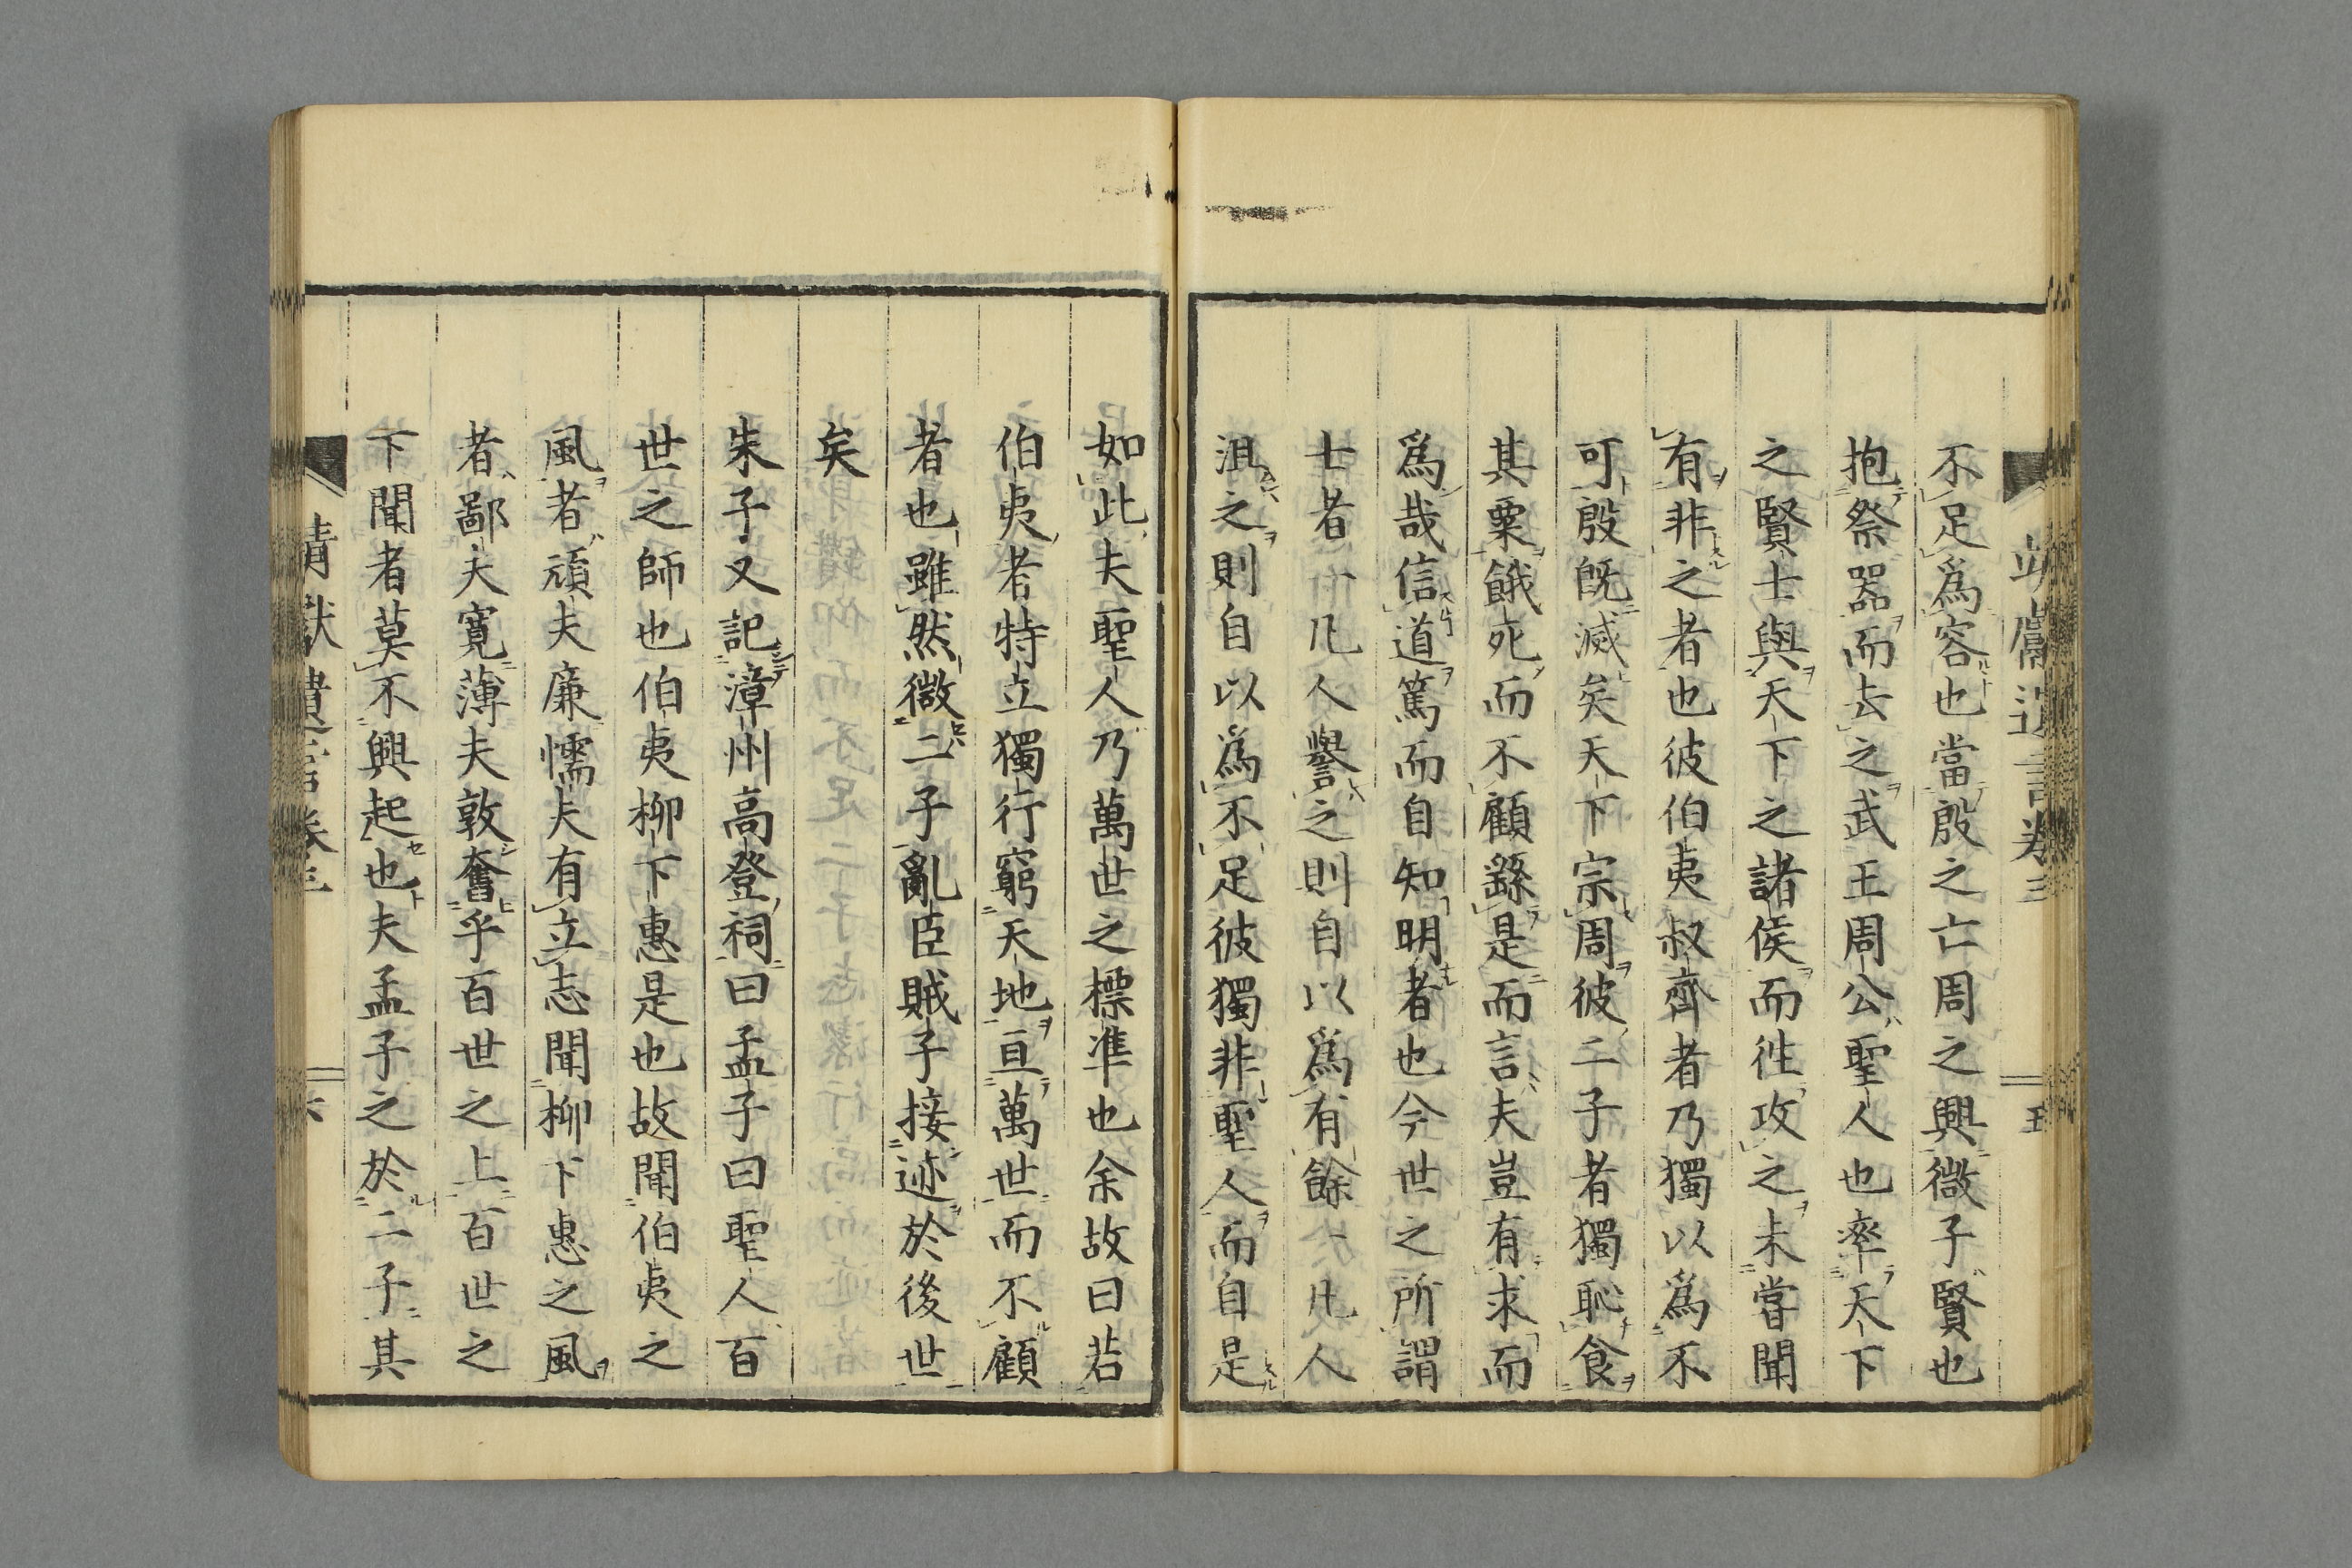 不足爲容也當殷之亡周之興微子賢也
抱祭器而去之武王周公聖人也率天下
之賢士與天下之諸侯而往攻之未甞聞
有非之者也彼伯夷叔齊者乃獨以爲不
可殷既滅矣天下宗周彼二子者獨恥食
其粟餓死而不顧繇是而言夫豈有求而
爲哉信道篤而自知明者也今世之所謂
士者凡人譽之則自以爲有餘凡人
沮之則自以爲不足彼獨非聖人而自是
如此夫聖人乃萬世之標準也余故曰若
伯夷者特立獨行窮天地亘萬世而不顧
者也雖然微二子亂臣賊子接迹於後世
矣
朱子又記漳州高登祠曰孟子曰聖人百
世之師也伯夷柳下惠是也故聞伯夷之
風者頑夫廉懦夫有立志聞柳下惠之風
者鄙夫寛薄夫敦奮乎百世之上百世之
下聞者莫不興起也夫孟子之於二子其
靖獻遺言卷三